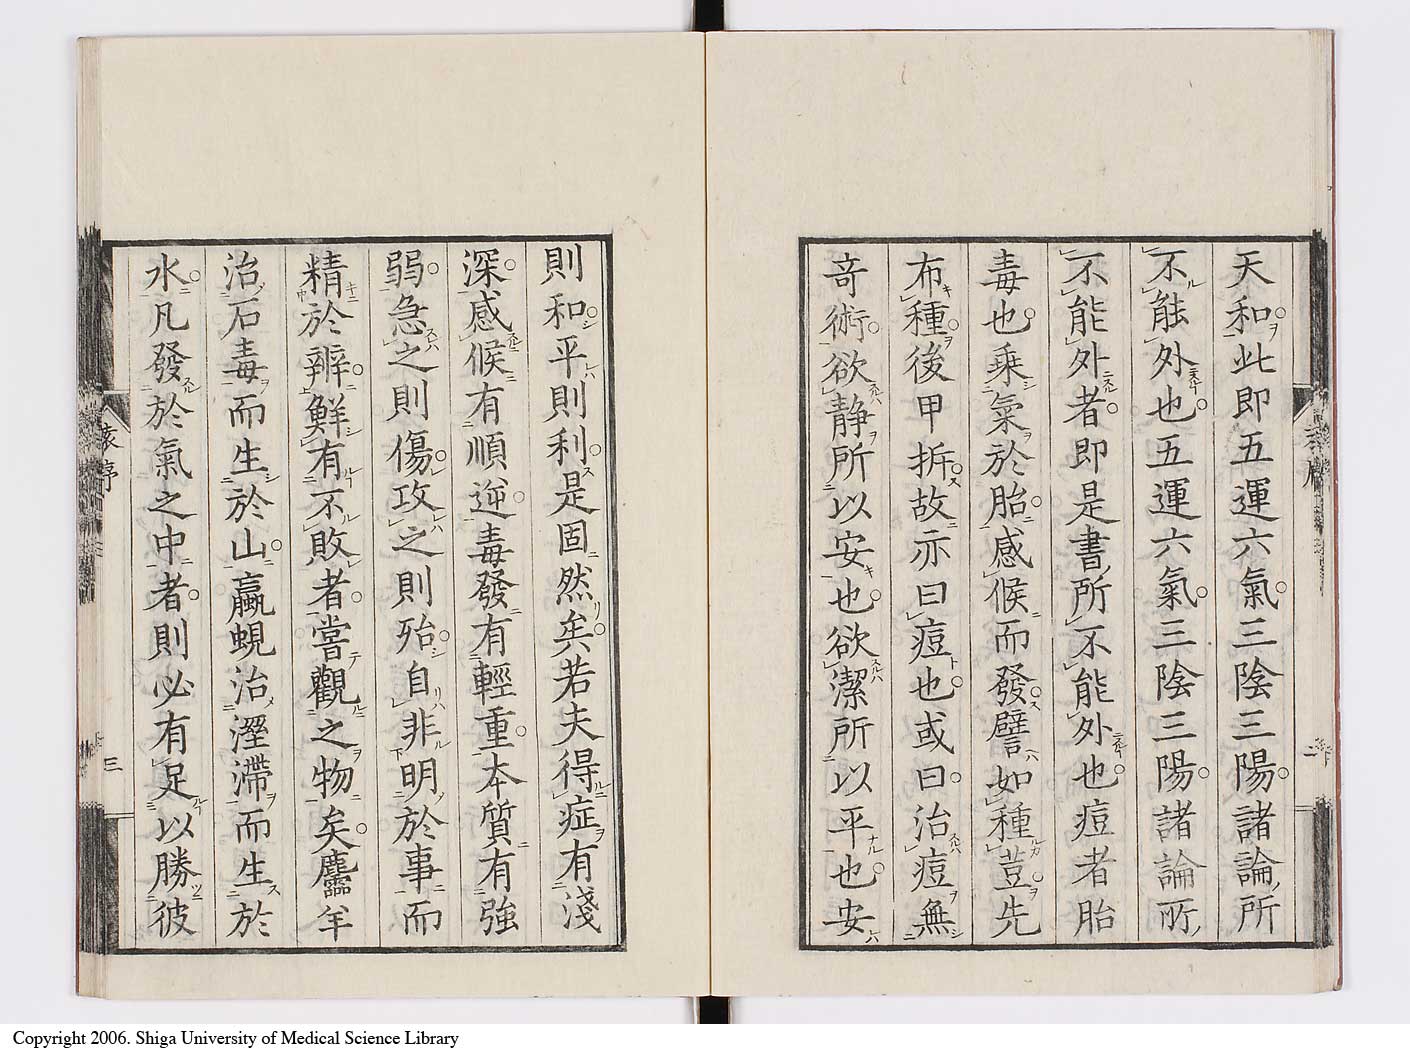 天和此即五運六氣三陰三陽諸論所
不能外也五運六氣三陰三陽諸論所
不能外者即是書所不能外也痘者胎
毒也乘氣於胎感候而發譬如種荳先
布種後甲拆故亦曰痘也或曰治痘無
奇術欲静所以安也欲潔所以平也安
則和平則利是固然矣若夫得症有淺
深感候有順逆毒發有輕重本質有強
弱急之則傷攻之則殆自非明於事而
精於辨鮮有不敗者嘗觀之物矣麢羊
治石毒而生於山蠃蜆治溼滯而生於
水凡發於氣之中者則必有足以勝彼
序
三
Copyright 2006. Shiga University of Medical Science Library